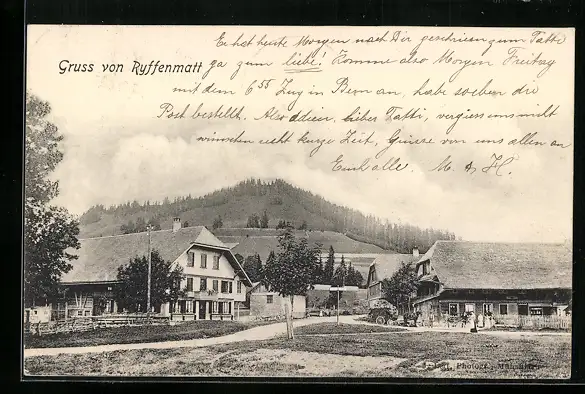 Gruss von Ryffenmatt
Erhalt heute Morgen nach Dir geschrieen zum Tatti
ga zum liebe! Komme also Morgen Freitag
mit dem 6 55 Zug in Bern an, habe soeben die
Post bestellt. Also addien, lieber Tatti, vergiss uns nicht
wünschen recht kurze Zeit, Grüsse von uns allen an
Euch alle. M. & H.
Photogr.